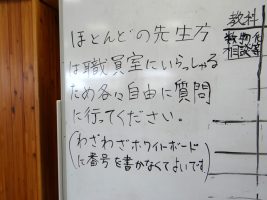 ほとんどの先生方
は職員室にいらっしゃる
ため各々自由に質問
に行ってください。
(わざわざホワイトボード
に番号を書かなくてよいです)
教科
数物化
相談等